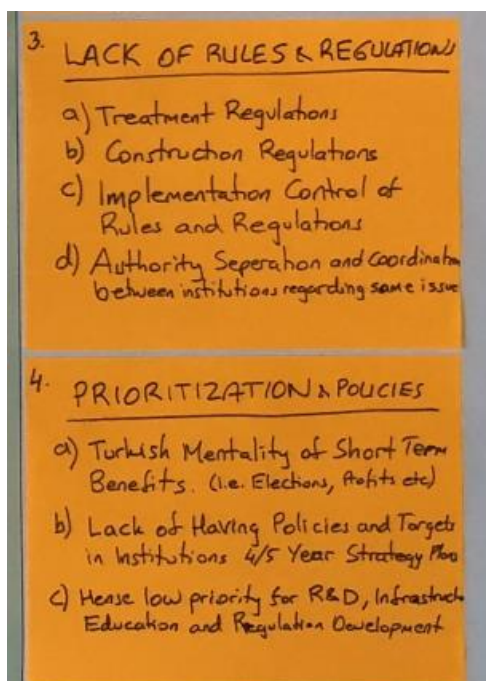 3.
LACK OF RULES & REGULATIONS
a) Treatment Regulations
b) Construction Regulations
c) Implementation Control of
Rules and Regulations
d) Authority Seperation and Coordination
between institutions regarding same issue
4.
PRIORITIZATION & POLICIES
a) Turkish Mentality of Short Term
Benefits. (i.e. Elections, Profits etc)
b) Lack of Having Policies and Targets
in Institutions 4/5 Year Strategy Plan
c) Hense low priority for R&D, Infrastruct
Education and Regulation Development